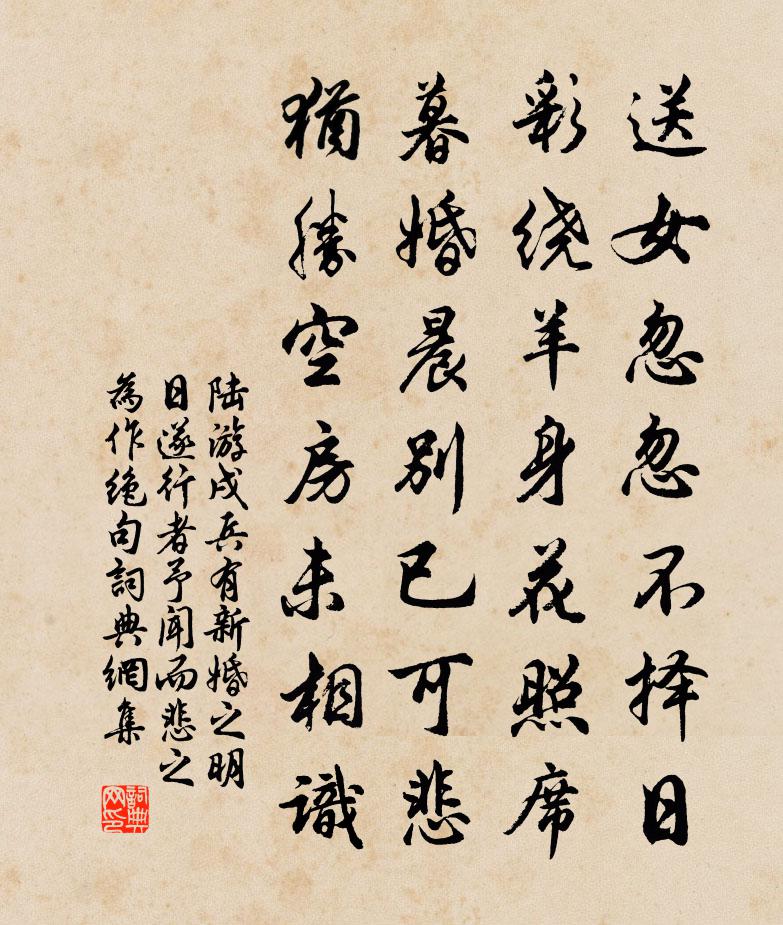 送女忽忽不择日
彩绕羊身花照席
暮婚晨别已可悲
猶勝空房未相識
陆游戍兵有新婚之明
日遂行者予闻而悲之
為作绝句詞典網集
詞典网印